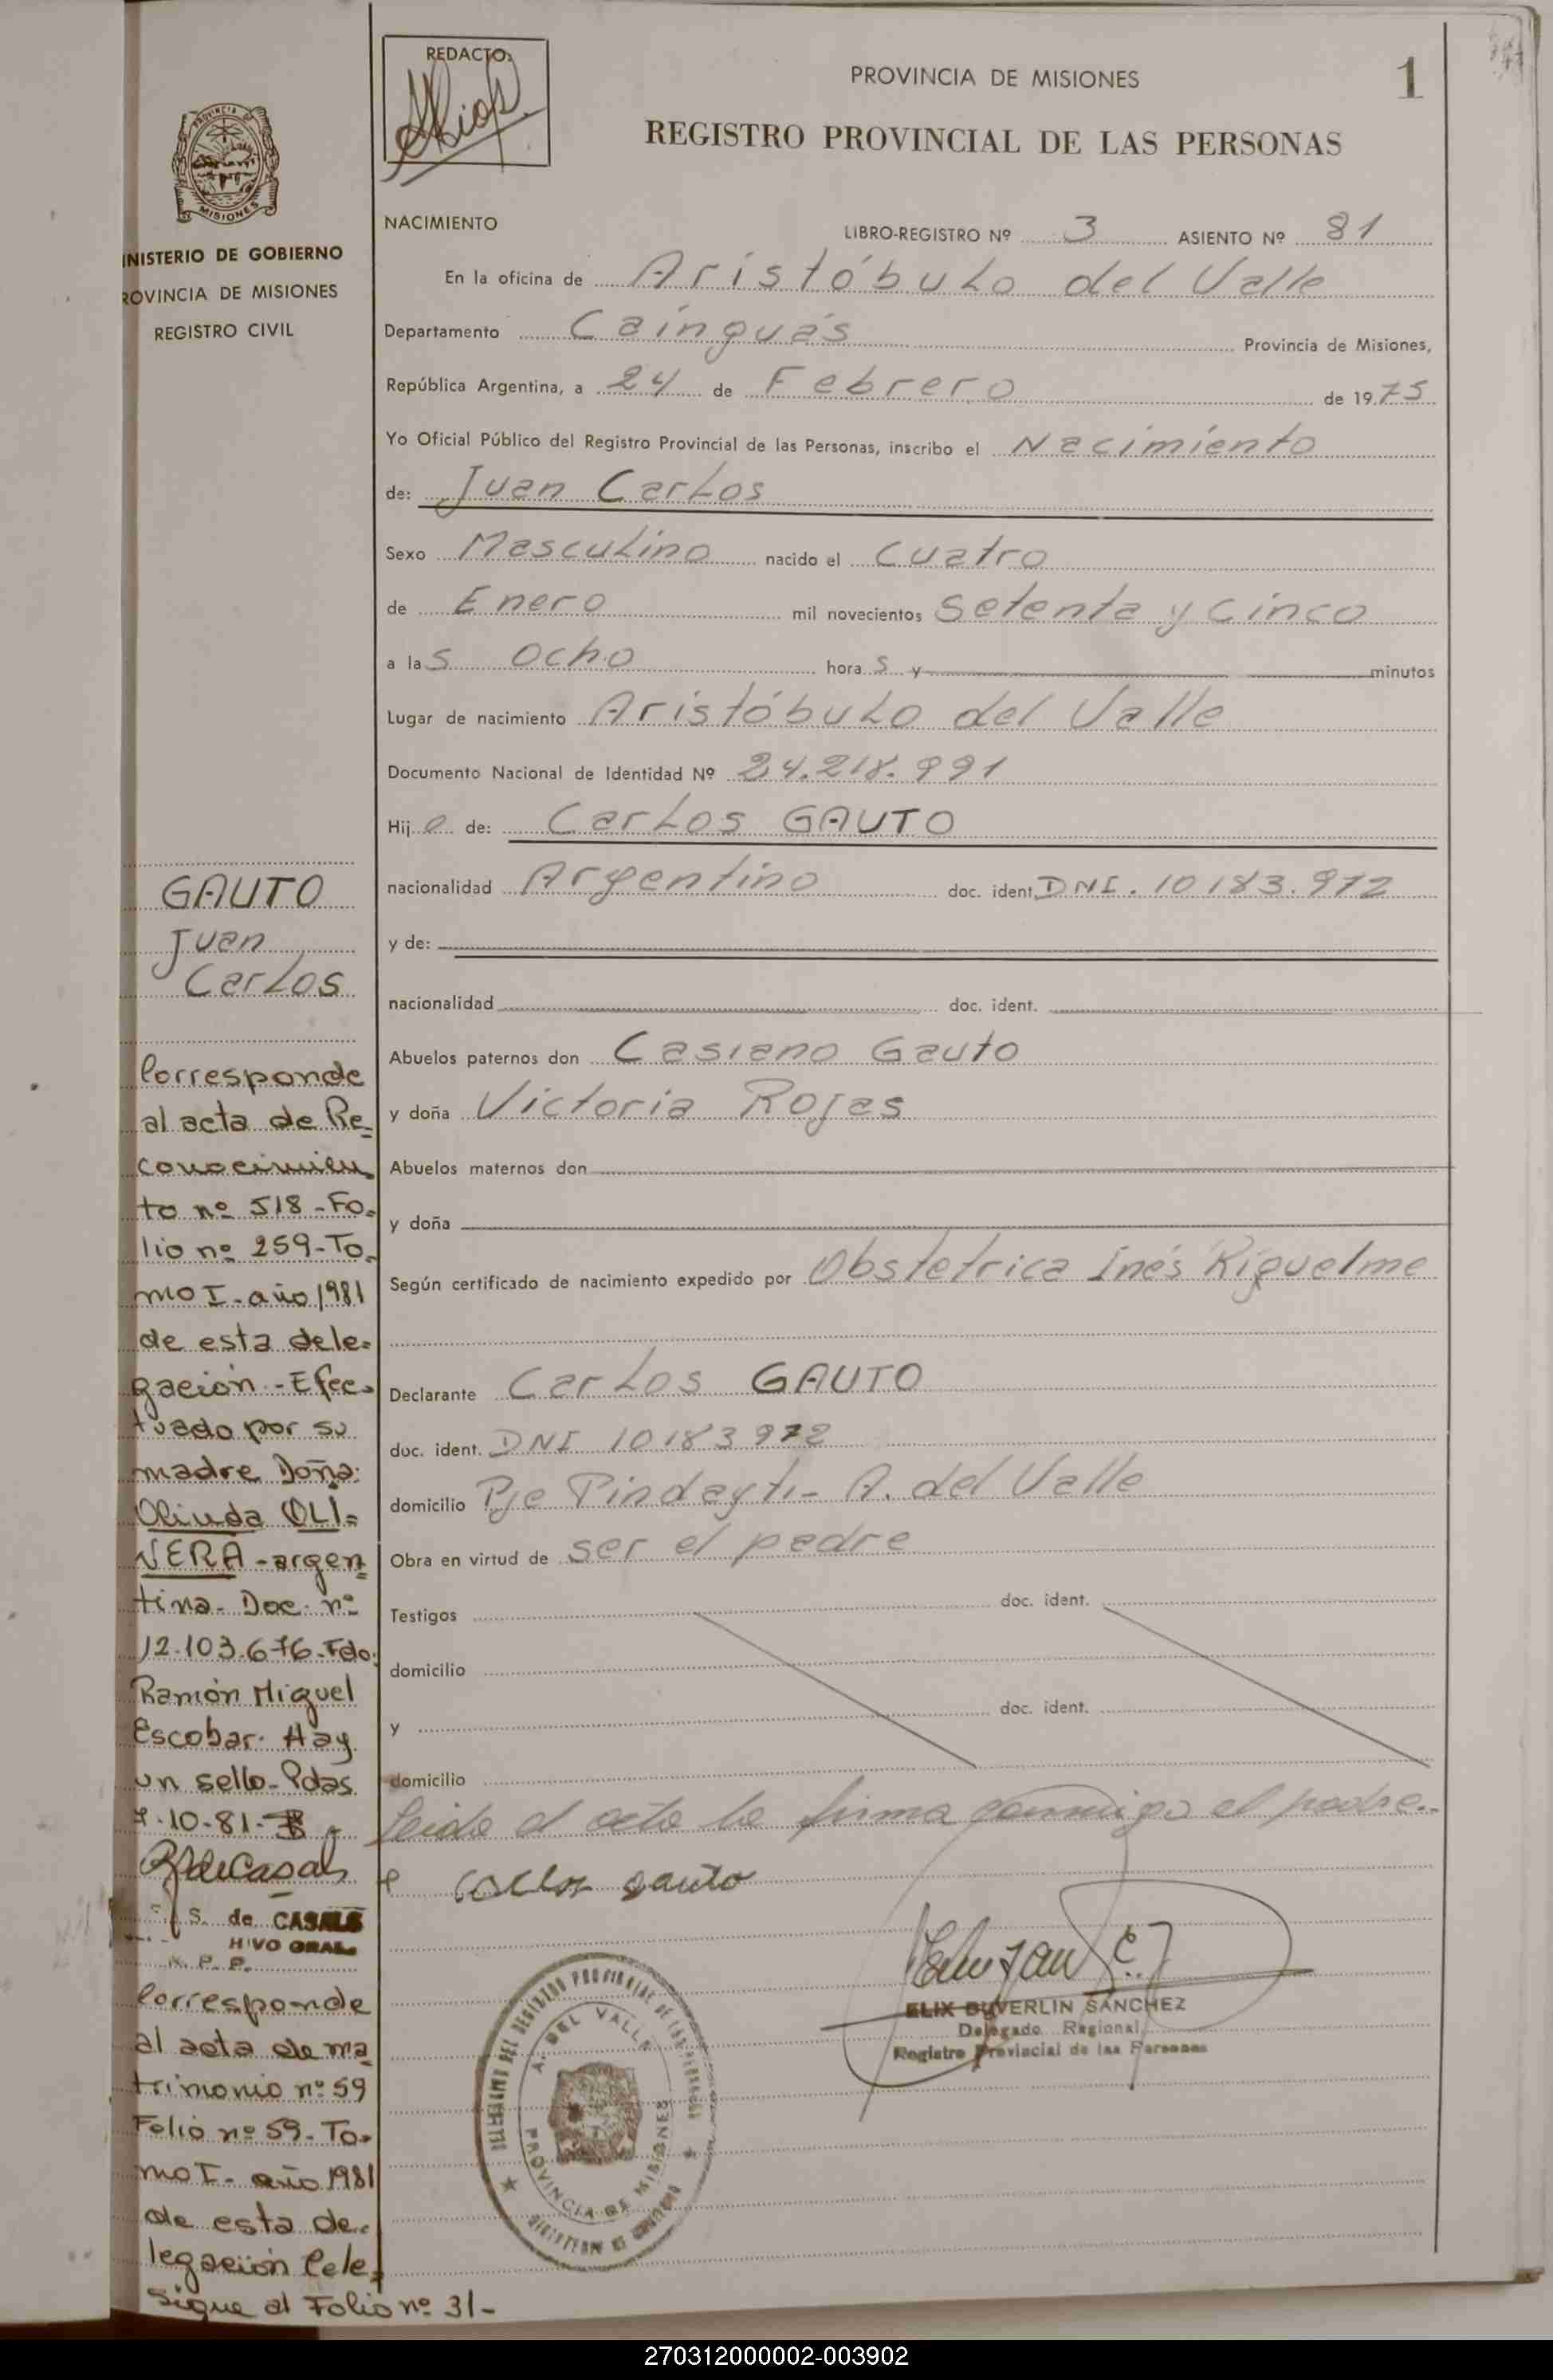 REDACTO:
PROVINCIA DE MISIONES
1
REGISTRO PROVINCIAL DE LAS PERSONAS
PROVINCIA DE
MISIONES
INISTERIO DE GOBIERNO
ROVINCIA DE MISIONES
REGISTRO CIVIL
NACIMIENTO
LIBRO-REGISTRO Nº 3 ASIENTO Nº 81
En la oficina de Aristóbulo del Valle
Departamento Cainguás Provincia de Misiones,
República Argentina, a 24 de Febrero de 1975
Yo Oficial Público del Registro Provincial de las Personas, inscribo el Nacimiento
de: Juan Carlos
Sexo Masculino nacido el Cuatro
de Enero mil novecientos Setenta y Cinco
a las Ocho horas y minutos
Lugar de nacimiento Aristóbulo del Valle
Documento Nacional de Identidad Nº 24.218.991
Hijo de: Carlos GAUTO
nacionalidad Argentino doc. ident. DNI. 10183.972
y de:
nacionalidad doc. ident.
Abuelos paternos don Casiano Gauto
y doña Victoria Rojas
Abuelos maternos don
y doña
Según certificado de nacimiento expedido por Obstetrica Inés Riquelme
Declarante Carlos GAUTO
doc. ident. DNI 10183972
domicilio Pje Pindayti- A. del Valle
Obra en virtud de ser el padre
Testigos doc. ident.
domicilio
y doc. ident.
domicilio
Leida el acta la firma conmigo el padre.-
Carlos Gauto
ELIX DUVERLIN SANCHEZ
Delegado Regional
Registro Provincial de las Personas
A. DEL VALLE
PROVINCIA DE MISIONES
GAUTO
Juan
Carlos
Corresponde
al acta de Re=
conocimien
to nº 518-Fo=
lio nº 259-To=
mo I-año 1981
de esta dele=
gación-Efec=
tuado por su
madre Doña:
Olinda OLI=
VERA-argen=
tina-Doc. nº
12.103.676-Fdo:
Ramón Miguel
Escobar. Hay
un sello-Pdas
7.10-81-
S. de CASALS
HIVO GRAL.
R. P. P.
Corresponde
al acta de ma
trimonio nº 59
Folio nº 59-To=
mo I-año 1981
de esta de=
legación Cele=
Sigue al Folio nº 31-
270312000002-003902